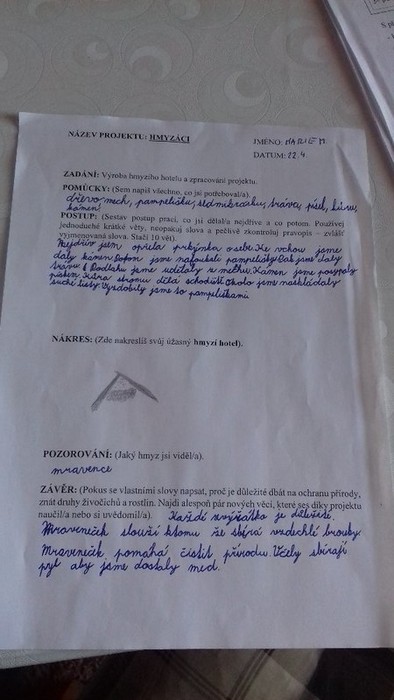 NÁZEV PROJEKTU: HMYZÁCI
JMÉNO: MARIEM
DATUM: 22.4.
ZADÁNÍ: Výroba hmyzího hotelu a zpracování projektu.
POMŮCKY: (Sem napiš všechno, co jsi potřeboval/a).
dřevo mech, pampelišku, sedmikrásku, trávu, písek, kůru,
kámen
POSTUP: (Sestav postup prací, co jsi dělal/a nejdříve a co potom. Používej
jednoduché krátké věty, neopakuj slova a pečlivě zkontroluj pravopis – zvlášť
vyjmenovaná slova. Stačí 10 vět).
Nejdřív jsem opřela prkýnka o sebe. Ke vchou jsme
daly kámen. Potom jsme napíchali pampelišky. Pak jsme daly
trávu. Podlahu jsme udělaly s mechu. Kámen jsme posypaly
pískem. Kůra stromu dělá schodiště. Okolo jsme naskládaly
suché listy. Vyzdobily jsme to pampeliškami.
NÁKRES: (Zde nakreslíš svůj úžasný hmyzí hotel).
POZOROVÁNÍ: (Jaký hmyz jsi viděl/a).
mravence
ZÁVĚR: (Pokus se vlastními slovy napsat, proč je důležité dbát na ochranu přírody,
znát druhy živočichů a rostlin. Najdi alespoň pár nových věcí, které ses díky projektu
naučil/a nebo si uvědomil/a). Každé zvířátko je důležité
Mraveneček slouží ktomu že sbírá vzdechlé brouky.
Mraveneček pomahá čistit přírodu. Včely sbírají
pyl aby jsme dostaly med.